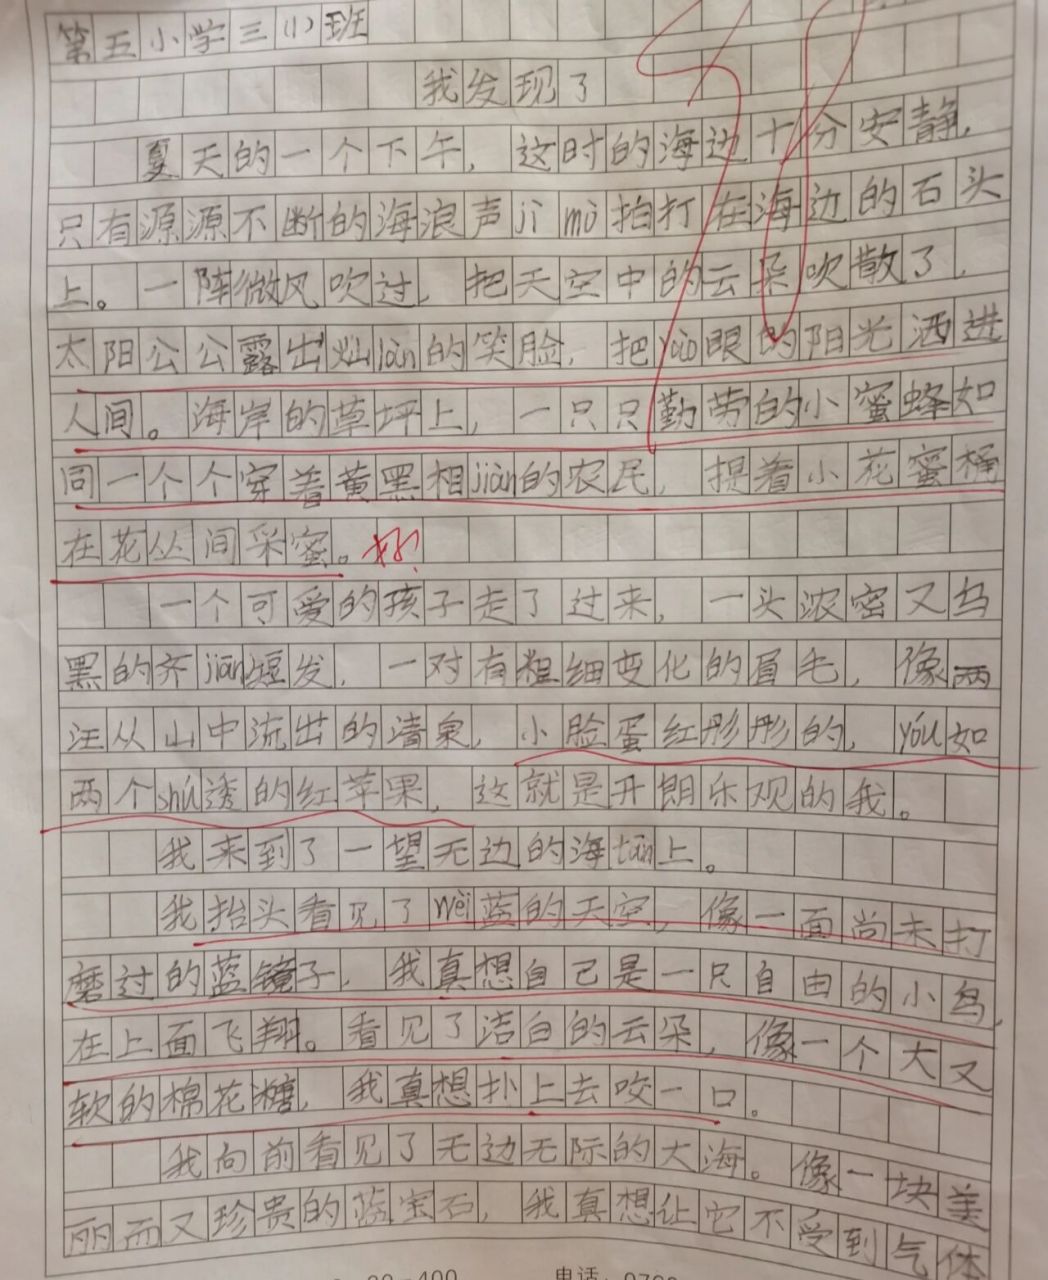 第五小学三(1)班
我发现了
夏天的一个下午，这时的海边十分安静，
只有源源不断的海浪声jì mò拍打在海边的石头
上。一阵微风吹过，把天空中的云朵吹散了，
太阳公公露出灿làn的笑脸，把yào眼的阳光洒进
人间。海岸的草坪上，一只只勤劳的小蜜蜂如
同一个个穿着黄黑相jiàn的农民，提着小花蜜桶
在花丛间采蜜。好！
一个可爱的孩子走了过来，一头浓密又乌
黑的齐jiān短发，一对有粗细变化的眉毛，像两
汪从山中流出的清泉，小脸蛋红彤彤的，yóu如
两个shú透的红苹果，这就是开朗乐观的我。
我来到了一望无边的海tān上。
我抬头看见了wèi蓝的天空，像一面尚未打
磨过的蓝镜子，我真想自己是一只自由的小鸟，
在上面飞翔。看见了洁白的云朵，像一个大又
软的棉花糖，我真想扑上去咬一口。
我向前看见了无边无际的大海。像一块美
丽而又珍贵的蓝宝石，我真想让它不受到气体